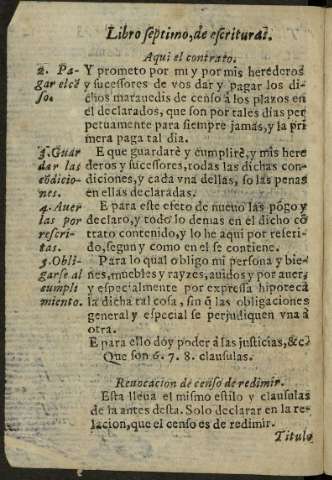 Libro septimo, de escrituras.
Aqui el contrato.
2. Pa- Y prometo por mi y por mis herederos
gar el cē y sucessores de vos dar y pagar los di-
so. chos marauedis de censo â los plazos en
el declarados, que son por tales dias per
petuamente para siempre jamàs, y la pri
mera paga tal dia.
3. Guar E que guardarè y cumplirè, y mis here
dar las deros y sucessores, todas las dichas con-
cōdicio- diciones, y cada vna dellas, so las penas
nes. en ellas declaradas.
4. Auer E para este efeto de nueuo las pōgo y
las por declaro, y todo lo demas en el dicho cō
reseri- trato contenido, y lo he aqui por referi-
tas. do, segun y como en el se contiene.
5. Obli- Para lo qual obligo mi persona y bie-
garse al nes, muebles y rayzes, auidos y por auer,
cumpli y especialmente por expressa hipoteca
miento. la dicha tal cosa, sin q̄ las obligaciones
general y especial se perjudiquen vna â
otra.
E para ello doy poder â las justicias, &c.
Que son 6. 7. 8. clausulas.
Reuocacion de censo de redimir.
Esta lleua el mismo estilo y clausulas
de la antes desta. Solo declarar en la re-
lacion, que el censo es de redimir.
Titulo